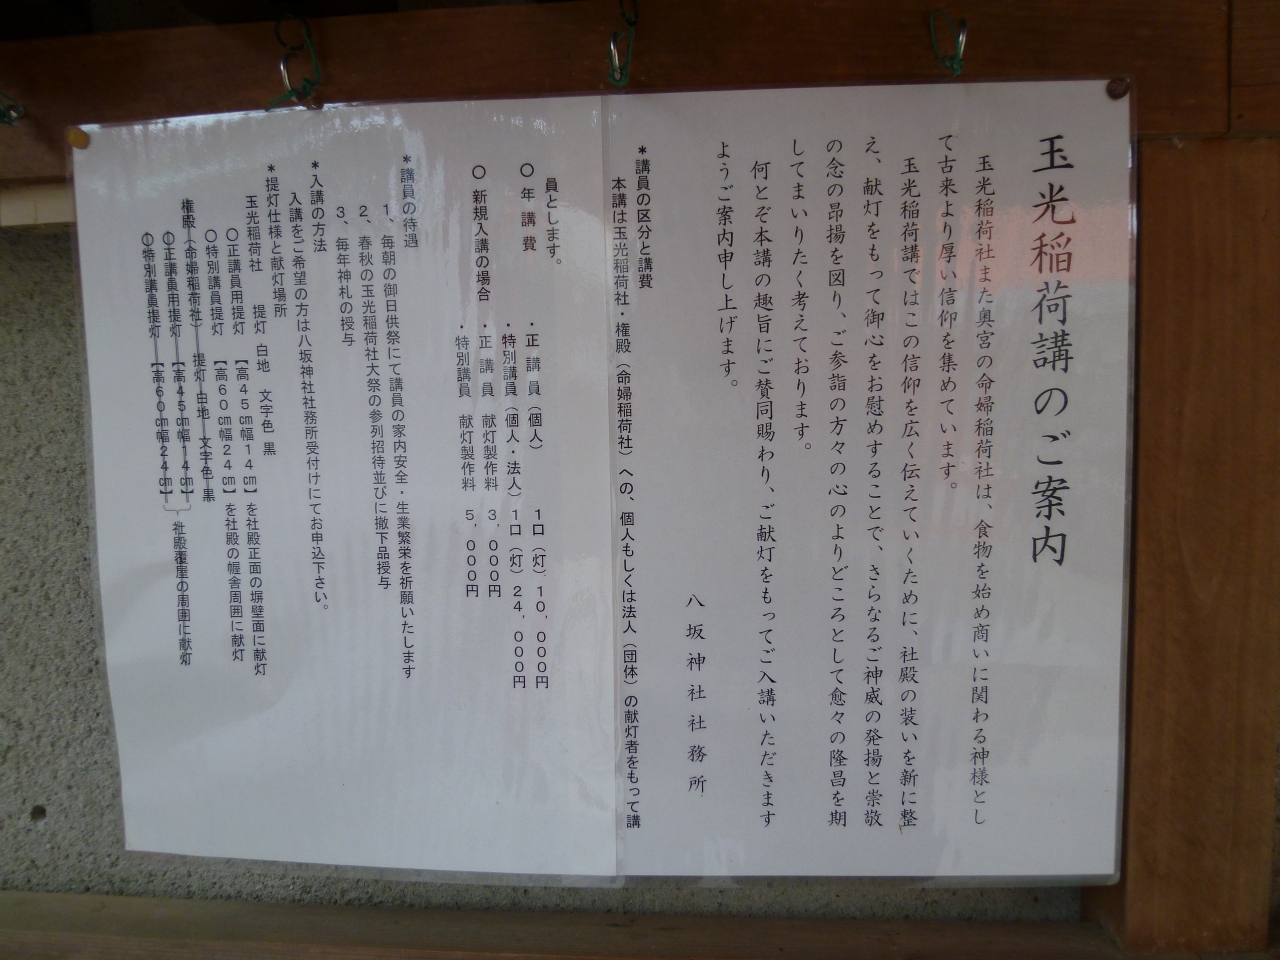 玉光稲荷講のご案内
玉光稲荷社また奥宮の命婦稲荷社は、食物を始め商いに関わる神様とし
て古来より厚い信仰を集めています。
玉光稲荷講ではこの信仰を広く伝えていくために、社殿の装いを新に整
え、献灯をもって御心をお慰めすることで、さらなるご神威の発揚と崇敬
の念の昂揚を図り、ご参詣の方々の心のよりどころとして愈々の隆昌を期
してまいりたく考えております。
何とぞ本講の趣旨にご賛同賜わり、ご献灯をもってご入講いただきます
ようご案内申し上げます。
八坂神社社務所
*講員の区分と講費
本講は玉光稲荷社・権殿（命婦稲荷社）への、個人もしくは法人（団体）の献灯者をもって講
員とします。
〇 年講費 ・正講員（個人） 1口（灯）10,000円
・特別講員（個人・法人）1口（灯）24,000円
〇 新規入講の場合 ・正講員 献灯製作料 3,000円
・特別講員 献灯製作料 5,000円
*講員の待遇
1、毎朝の御日供祭にて講員の家内安全・生業繁栄を祈願いたします
2、春秋の玉光稲荷社大祭の参列招待並びに撤下品授与
3、毎年神札の授与
*入講の方法
入講をご希望の方は八坂神社社務所受付けにてお申込下さい。
*提灯仕様と献灯場所
玉光稲荷社 提灯 白地 文字色 黒
〇正講員用提灯 【高45㎝幅14㎝】を社殿正面の塀壁面に献灯
〇特別講員提灯 【高60㎝幅24㎝】を社殿の幄舎周囲に献灯
権殿（命婦稲荷社） 提灯 白地 文字色 黒
〇正講員用提灯 【高45㎝幅14㎝】
〇特別講員提灯 【高60㎝幅24㎝】
社殿覆屋の周囲に献灯